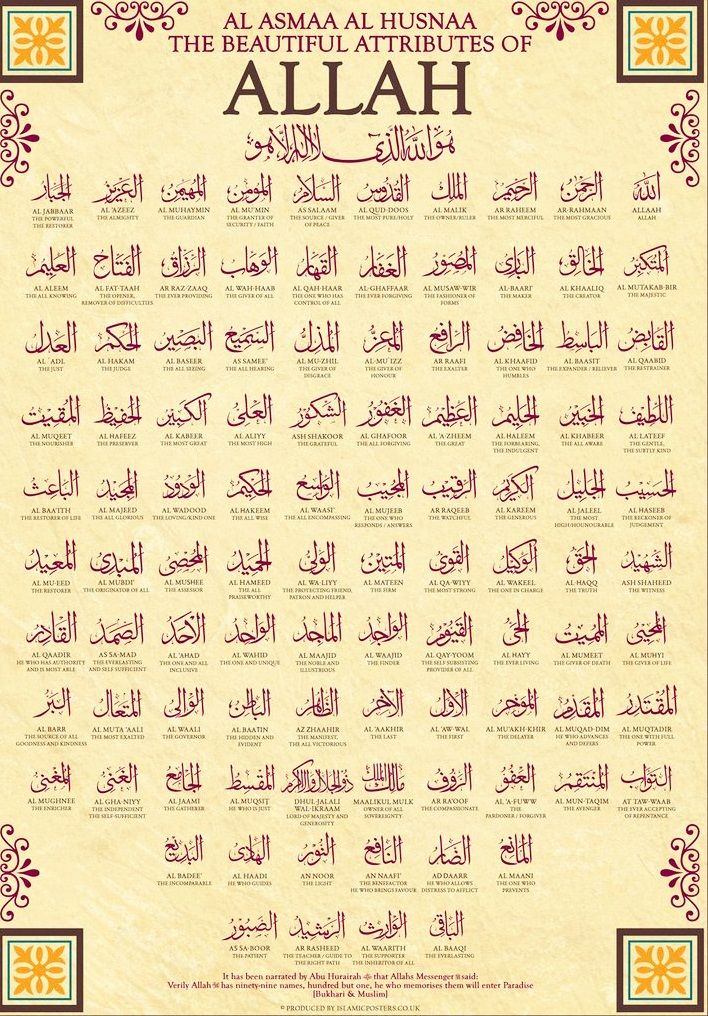 AL ASMAA AL HUSNAA
THE BEAUTIFUL ATTRIBUTES OF
ALLAH
هو الله الذي لا اله الا هو
الله
ALLAAH
ALLAH
الرحمن
AR-RAHMAAN
THE MOST GRACIOUS
الرحيم
AR RAHEEM
THE MOST MERCIFUL
الملك
AL MALIK
THE OWNER/RULER
القدوس
AL QUD-DOOS
THE MOST PURE/HOLY
السلام
AS SALAAM
THE SOURCE / GIVER
OF PEACE
المومن
AL MU'MIN
THE GRANTER OF
SECURITY / FAITH
المهيمن
AL MUHAYMIN
THE GUARDIAN
العزيز
AL 'AZEEZ
THE ALMIGHTY
الجبار
AL JABBAAR
THE POWERFUL
THE RESTORER
المتكبر
AL MUTAKAB-BIR
THE MAJESTIC
الخالق
AL KHAALIQ
THE CREATOR
الباري
AL-BAARI'
THE MAKER
المصور
AL MUSAW-WIR
THE FASHIONER OF
FORMS
الغفار
AL-GHAFFAAR
THE EVER FORGIVING
القهار
AL QAH-HAAR
THE ONE WHO HAS
CONTROL OF ALL
الوهاب
AL WAH-HAAB
THE GIVER OF ALL
الرزاق
AR RAZ-ZAAQ
THE EVER PROVIDING
الفتاح
AL FAT-TAAH
THE OPENER,
REMOVER OF DIFFICULTIES
العليم
AL ALEEM
THE ALL KNOWING
القابض
AL QAABID
THE RESTRAINER
الباسط
AL BAASIT
THE EXPANDER / RELIEVER
الخافض
AL KHAAFID
THE ONE WHO
HUMBLES
الرافع
AR RAAFI
THE EXALTER
المعز
AL-MU'IZZ
THE GIVER OF
HONOUR
المذل
AL MU-ZHIL
THE GIVER OF
DISGRACE
السميع
AS SAMEE'
THE ALL HEARING
البصير
AL BASEER
THE ALL SEEING
الحكم
AL HAKAM
THE JUDGE
العدل
AL 'ADL
THE JUST
اللطيف
AL LATEEF
THE GENTLE,
THE SUBTLY KIND
الخبير
AL KHABEER
THE ALL AWARE
الحليم
AL HALEEM
THE FORBEARING,
THE INDULGENT
العظيم
AL 'A'ZHEEM
THE GREAT
الغفور
AL GHAFOOR
THE ALL FORGIVING
الشكور
ASH SHAKOOR
THE GRATEFUL
العلي
AL ALIYY
THE MOST HIGH
الكبير
AL KABEER
THE MOST GREAT
الحفيظ
AL HAFEEZ
THE PRESERVER
المقيت
AL MUQEET
THE NOURISHER
الحسيب
AL HASEEB
THE RECKONER OF
JUDGEMENT
الجليل
AL JALEEL
THE MOST
HIGH/HOUNOURABLE
الكريم
AL KAREEM
THE GENEROUS
الرقيب
AR RAQEEB
THE WATCHFUL
المجيب
AL MUJEEB
THE ONE WHO
RESPONDS / ANSWERS
الواسع
AL WAASI'
THE ALL ENCOMPASSING
الحكيم
AL HAKEEM
THE ALL WISE
الودود
AL WADOOD
THE LOVING/KIND ONE
المجيد
AL MAJEED
THE ALL GLORIOUS
الباعث
AL BAA'ITH
THE RESTORER OF LIFE
الشهيد
ASH SHAHEED
THE WITNESS
الحق
AL-HAQQ
THE TRUTH
الوكيل
AL WAKEEL
THE ONE IN CHARGE
القوي
AL QA-WIYY
THE MOST STRONG
المتين
AL MATEEN
THE FIRM
الولي
AL WA-LIYY
THE PROTECTING FRIEND,
PATRON AND HELPER
الحميد
AL HAMEED
THE ALL
PRAISEWORTHY
المحصي
AL MUSHEE
THE ASSESSOR
المبدي
AL MUBDI'
THE ORIGINATOR OF ALL
المعيد
AL MU-EED
THE RESTORER
المحيي
AL MUHYI
THE GIVER OF LIFE
المميت
AL MUMEET
THE GIVER OF DEATH
الحي
AL HAYY
THE EVER LIVING
القيوم
AL QAY-YOOM
THE SELF SUBSISTING
PROVIDER OF ALL
الواجد
AL WAAJID
THE FINDER
الماجد
AL MAAJID
THE NOBLE AND
ILLUSTRIOUS
الواحد
AL WAHID
THE ONE AND UNIQUE
الاحد
AL 'AHAD
THE ONE AND ALL
INCLUSIVE
الصمد
AS SA-MAD
THE EVERLASTING
AND SELF SUFFICIENT
القادر
AL QAADIR
HE WHO HAS AUTHORITY
AND IS MOST ABLE
المقتدر
AL MUQTADIR
THE ONE WITH FULL
POWER
المقدم
AL MUQAD-DIM
HE WHO ADVANCES
AND DEFERS
الموخر
AL MU'AKH-KHIR
THE DELAYER
الاول
AL 'AW-WAL
THE FIRST
الاخر
AL 'AAKHIR
THE LAST
الظاهر
AZ ZHAAHIR
THE MANIFEST,
THE ALL VICTORIOUS
الباطن
AL BAATIN
THE HIDDEN AND
EVIDENT
الوالي
AL WAALI
THE GOVERNOR
المتعال
AL MUTA 'AALI
THE MOST EXALTED
البر
AL BARR
THE SOURCE OF ALL
GOODNESS AND KINDNESS
التواب
AT TAW-WAAB
THE EVER ACCEPTING
OF REPENTANCE
المنتقم
AL MUN-TAQIM
THE AVENGER
العفو
AL 'A-FUWW
THE
PARDONER / FORGIVER
الروف
AR RA'OOF
THE COMPASSIONATE
مالك الملك
MAALIKUL MULK
OWNER OF ALL
SOVEREIGNTY
ذو الجلال والاكرام
DHUL-JALALI
WAL-IKRAAM
LORD OF MAJESTY AND
GENEROSITY
المقسط
AL MUQSIT
HE WHO IS JUST
الجامع
AL JAAMI
THE GATHERER
الغني
AL GHA-NIYY
THE INDEPENDENT
THE SELF-SUFFICIENT
المغني
AL MUGHNEE
THE ENRICHER
المانع
AL MAANI
THE ONE WHO
PREVENTS
الضار
AD DAARR
HE WHO ALLOWS
DISTRESS TO AFFLICT
النافع
AN NAAFI'
THE BENEFACTOR
HE WHO BRINGS FAVOUR
النور
AN NOOR
THE LIGHT
الهادي
AL HAADI
HE WHO GUIDES
البديع
AL BADEE'
THE INCOMPARABLE
الباقي
AL BAAQI
THE EVERLASTING
الوارث
AL WAARITH
THE SUPPORTER
THE INHERITOR OF ALL
الرشيد
AR RASHEED
THE TEACHER / GUIDE TO
THE RIGHT PATH
الصبور
AS SA-BOOR
THE PATIENT
It has been narrated by Abu Hurairah that Allahs Messenger ﷺ said:
Verily Allah has ninety-nine names, hundred but one, he who memorises them will enter Paradise
[Bukhari & Muslim]
© PRODUCED BY ISLAMICPOSTERS.CO.UK